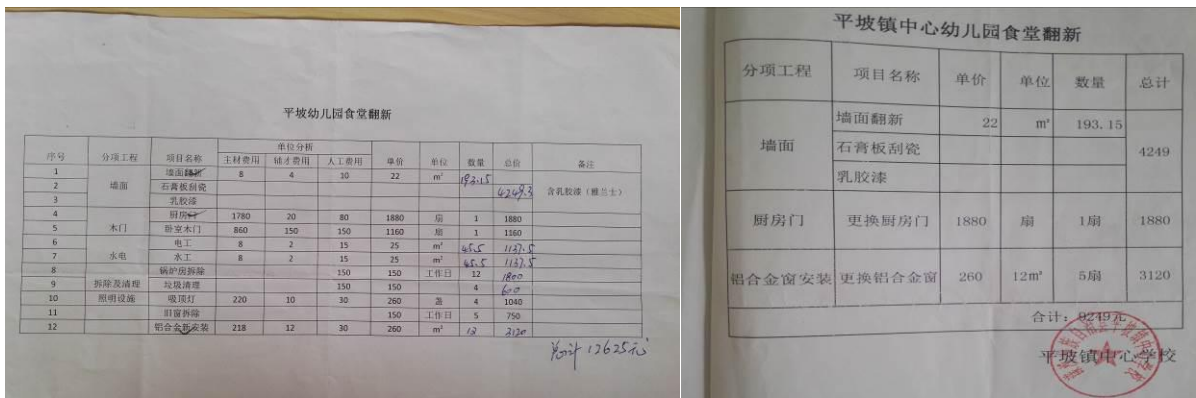 平坡幼儿园食堂翻新
序号 分项工程 项目名称 单位分析 单价 单位 数量 总价 备注
主材费用 辅才费用 人工费用
1 墙面 墙面翻新 8 4 10 22 m² 193.15 4249.3 含乳胶漆（雅兰士）
2 石膏板刮瓷
3 乳胶漆
4 木门 厨房门 1780 20 80 1880 扇 1 1880
5 卧室木门 860 150 150 1160 扇 1 1160
6 水电 电工 8 2 15 25 m² 45.5 1137.5
7 水工 8 2 15 25 m² 45.5 1137.5
8 锅炉房拆除 150 150 工作日 12 1800
9 拆除及清理 垃圾清理 150 150 4 600
10 照明设施 吸顶灯 220 10 30 260 盏 4 1040
11 旧窗拆除 150 工作日 5 750
12 铝合金新安装 218 12 30 260 m² 12 3120
总计 12625元
平坡镇中心幼儿园食堂翻新
分项工程 项目名称 单价 单位 数量 总计
墙面 墙面翻新 22 m² 193.15 4249
石膏板刮瓷
乳胶漆
厨房门 更换厨房门 1880 扇 1扇 1880
铝合金窗安装 更换铝合金窗 260 12m² 5扇 3120
合计：9249元
平坡镇中心学校